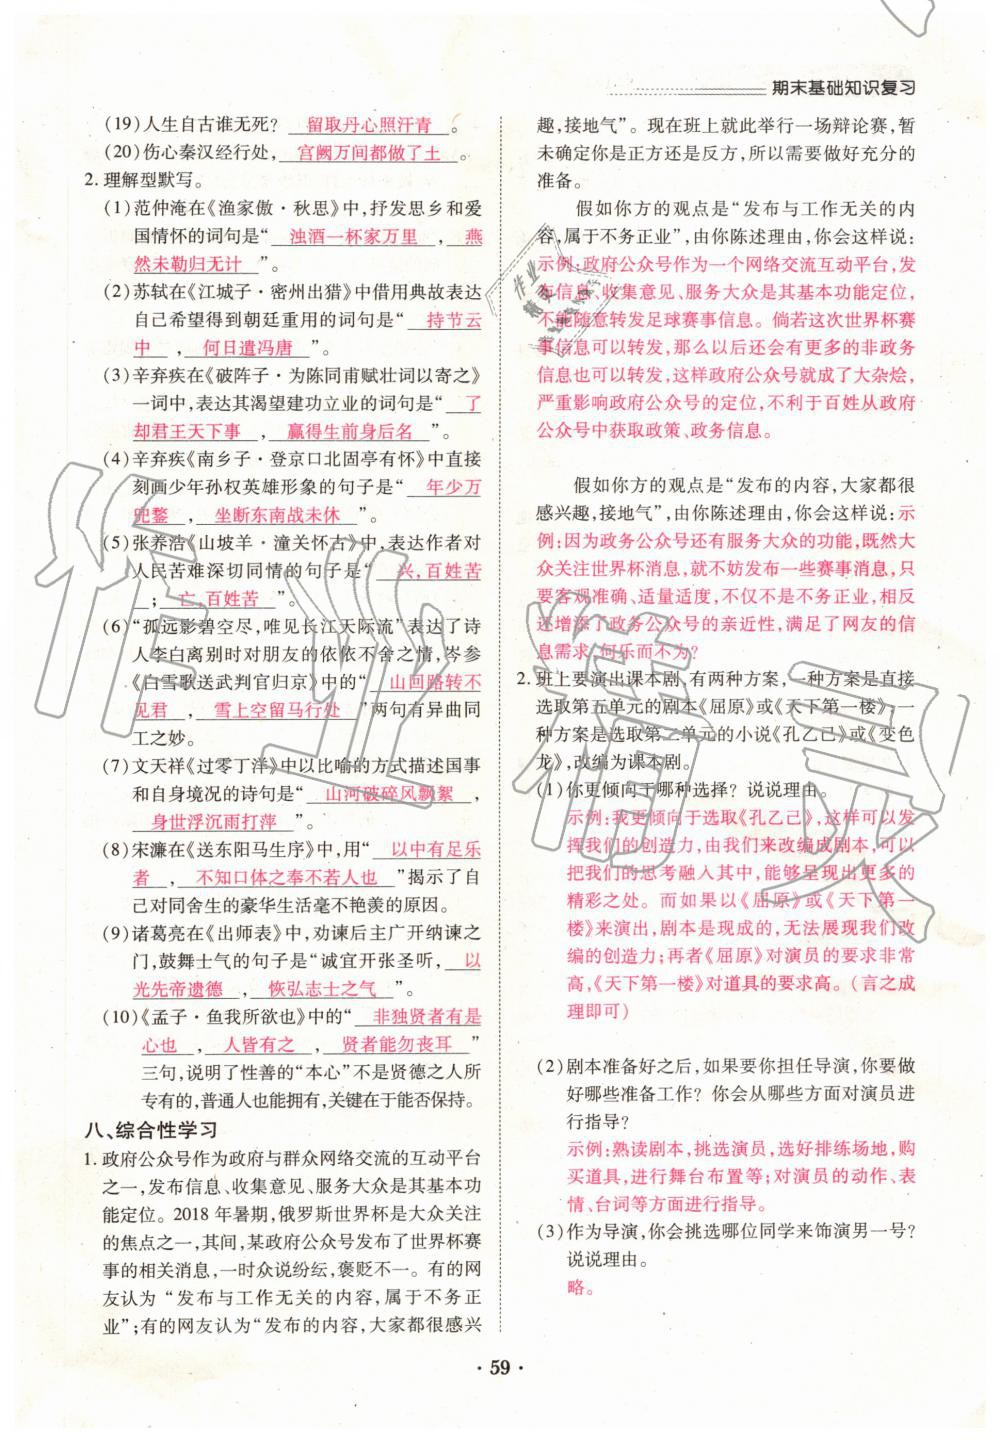 期末基础知识复习
(19)人生自古谁无死? 留取丹心照汗青。
(20)伤心秦汉经行处,宫阙万间都做了土。
2.理解型默写。
(1)范仲淹在《渔家傲·秋思》中,抒发思乡和爱
国情怀的词句是“浊酒一杯家万里,燕
然未勒归无计”。
(2)苏轼在《江城子·密州出猎》中借用典故表达
自己希望得到朝廷重用的词句是“持节云
中,何日遣冯唐”。
(3)辛弃疾在《破阵子·为陈同甫赋壮词以寄之》
一词中,表达其渴望建功立业的词句是“了
却君王天下事,赢得生前身后名”。
(4)辛弃疾《南乡子·登京口北固亭有怀》中直接
刻画少年孙权英雄形象的句子是“年少万
兜鍪,坐断东南战未休”。
(5)张养浩《山坡羊·潼关怀古》中,表达作者对
人民苦难深切同情的句子是“兴,百姓苦
;亡,百姓苦”。
(6)“孤远影碧空尽,唯见长江天际流”表达了诗
人李白离别时对朋友的依依不舍之情,岑参
《白雪歌送武判官归京》中的“山回路转不
见君,雪上空留马行处”两句有异曲同
工之妙。
(7)文天祥《过零丁洋》中以比喻的方式描述国事
和自身境况的诗句是“山河破碎风飘絮,
身世浮沉雨打萍”。
(8)宋濂在《送东阳马生序》中,用“以中有足乐
者,不知口体之奉不若人也”揭示了自
己对同舍生的豪华生活毫不艳羡的原因。
(9)诸葛亮在《出师表》中,劝谏后主广开纳谏之
门,鼓舞士气的句子是“诚宜开张圣听,以
光先帝遗德,恢弘志士之气”。
(10)《孟子·鱼我所欲也》中的“非独贤者有是
心也,人皆有之,贤者能勿丧耳”
三句,说明了性善的“本心”不是贤德之人所
专有的,普通人也能拥有,关键在于能否保持。
八、综合性学习
1.政府公众号作为政府与群众网络交流的互动平台
之一,发布信息、收集意见、服务大众是其基本功
能定位。2018年暑期,俄罗斯世界杯是大众关注
的焦点之一,其间,某政府公众号发布了世界杯赛
事的相关消息,一时众说纷纭,褒贬不一。有的网
友认为“发布与工作无关的内容,属于不务正
业”;有的网友认为“发布的内容,大家都很感兴
趣,接地气”。现在班上就此举行一场辩论赛,暂
未确定你是正方还是反方,所以需要做好充分的
准备。
假如你方的观点是“发布与工作无关的内
容,属于不务正业”,由你陈述理由,你会这样说:
示例:政府公众号作为一个网络交流互动平台,发
布信息、收集意见、服务大众是其基本功能定位,
不能随意转发足球赛事信息。倘若这次世界杯赛
事信息可以转发,那么以后还会有更多的非政务
信息也可以转发,这样政府公众号就成了大杂烩,
严重影响政府公众号的定位,不利于百姓从政府
公众号中获取政策、政务信息。
假如你方的观点是“发布的内容,大家都很
感兴趣,接地气”,由你陈述理由,你会这样说:示
例:因为政务公众号还有服务大众的功能,既然大
众关注世界杯消息,就不妨发布一些赛事消息,只
要客观准确、适量适度,不仅不是不务正业,相反
还增添了政务公众号的亲近性,满足了网友的信
息需求,何乐而不为?
2.班上要演出课本剧,有两种方案,一种方案是直接
选取第五单元的剧本《屈原》或《天下第一楼》;一
种方案是选取第二单元的小说《孔乙己》或《变色
龙》,改编为课本剧。
(1)你更倾向于哪种选择? 说说理由。
示例:我更倾向于选取《孔乙己》,这样可以发
挥我们的创造力,由我们来改编成剧本,可以把
我们的思考融入其中,能够呈现出更多的
精彩之处。而如果以《屈原》或《天下第一
楼》来演出,剧本是现成的,无法展现我们改
编的创造力;再者《屈原》对演员的要求非常
高,《天下第一楼》对道具的要求高。(言之成
理即可)
(2)剧本准备好之后,如果要你担任导演,你要做
好哪些准备工作? 你会从哪些方面对演员
进行指导?
示例:熟读剧本,挑选演员,选好排练场地,购
买道具,进行舞台布置等;对演员的动作、表
情、台词等方面进行指导。
(3)作为导演,你会挑选哪位同学来饰演男一号?
说说理由。
略。
· 59 ·
作业精灵